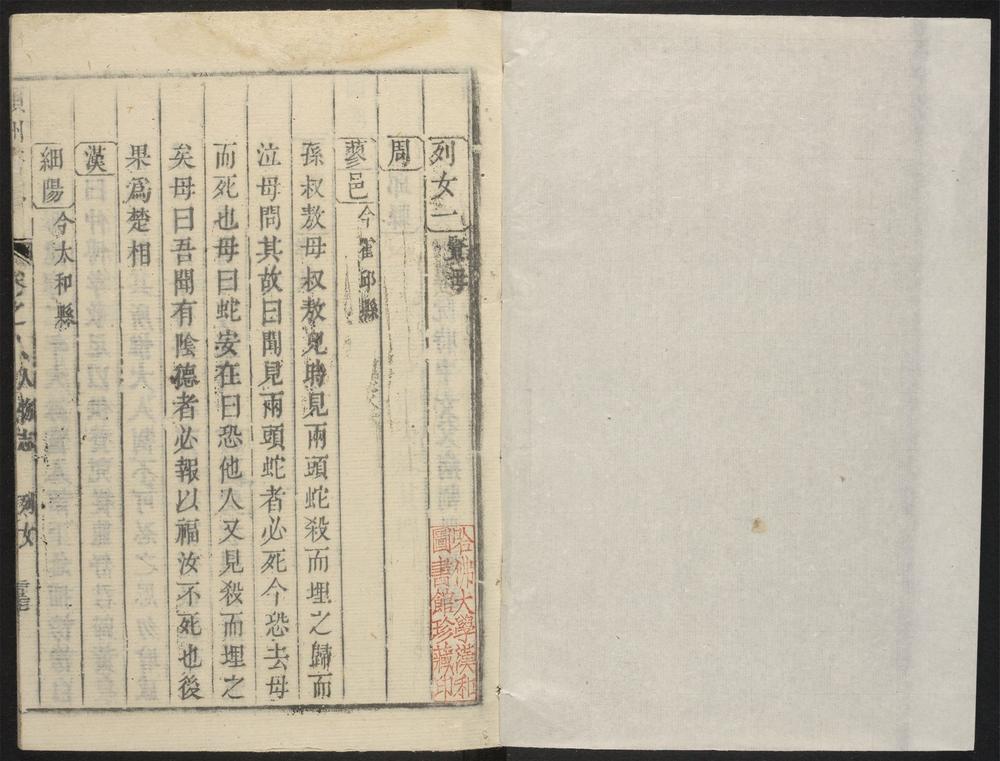 列女一 賢母
周
蓼邑 今霍邱縣
孫叔敖母叔敖兒時見兩頭蛇殺而埋之歸而
泣母問其故曰聞見兩頭蛇者必死今恐去母
而死也母曰蛇安在曰恐他人又見殺而埋之
矣母曰吾聞有陰德者必報以福汝不死也後
果爲楚相
漢
細陽 今太和縣
卷之八 人物志 列女
哈佛大學漢和
圖書館珍藏印